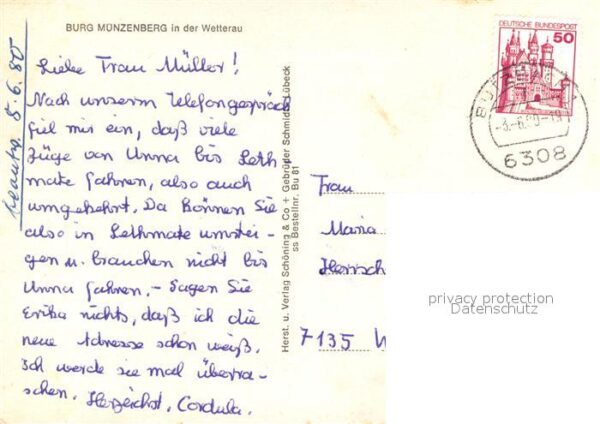 BURG MÜNZENBERG in der Wetterau
beantw. 8.6.80
Liebe Frau Müller!
Nach unserm Telefongespräch
fiel mir ein, daß viele
Züge von Unna bis Leth-
mate fahren, also auch
umgekehrt. Da können Sie
also in Lethmate umstei-
gen u. brauchen nicht bis
Unna fahren. – Sagen Sie
Erika nichts, daß ich die
neue Adresse schon weiß.
Ich werde sie mal überra-
schen. Herzlichst, Cordula.
Herst. u. Verlag Schöning & Co + Gebrüder Schmidt, Lübeck
ss Bestellnr. Bu 81
DEUTSCHE BUNDESPOST
50
BUTZBACH 1
-3.-6.80-19
6308
Frau
Maria
Herrsch
7135 W
privacy protection
Datenschutz